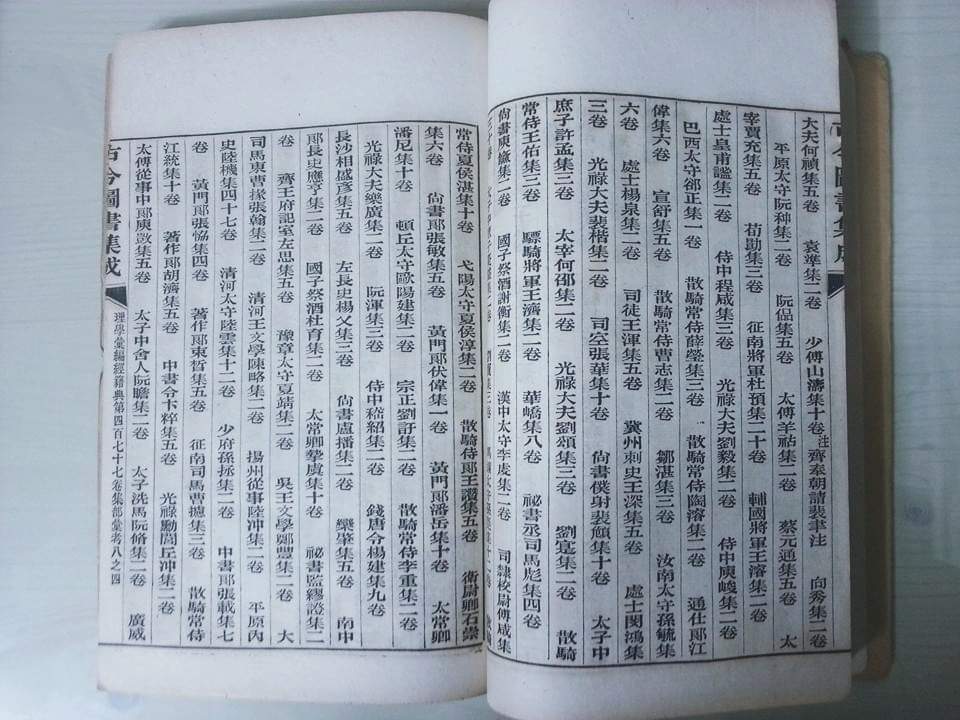 大夫何禎集五卷　袁準集二卷　少傅山濤集十卷注齊奉朝請裴𦘕注　向秀集二卷
平原太守阮种集二卷　阮侃集五卷　太傅羊祜集二卷　蔡元通集五卷　太
宰賈充集五卷　荀勗集三卷　征南將軍杜預集二十卷　輔國將軍王濬集二卷
處士皇甫謐集二卷　侍中程咸集三卷　光祿大夫劉毅集二卷　侍中庾峻集二卷
巴西太守郤正集一卷　散騎常侍薛瑩集三卷　散騎常侍陶濬集二卷　通仕郞江
偉集六卷　宣舒集五卷　散騎常侍曹志集二卷　鄒湛集三卷　汝南太守孫毓集
六卷　處士楊泉集二卷　司徒王渾集五卷　冀州刺史王深集五卷　處士閔鴻集
三卷　光祿大夫裴楷集二卷　司空張華集十卷　尙書僕射裴頠集十卷　太子中
庶子許孟集三卷　太宰何邵集二卷　光祿大夫劉頌集三卷　劉寔集二卷　散騎
常侍王佑集二卷　驃騎將軍王濟集二卷　華嶠集八卷　祕書丞司馬彪集四卷
尙書庾儵集二卷　國子祭酒謝衡集二卷　漢中太守李虔集二卷　司隸校尉傅咸集
常侍夏侯湛集十卷　弋陽太守夏侯淳集二卷　散騎侍郞王讚集五卷　衞尉卿石崇
集六卷　尙書郞張敏集五卷　黃門郞伏偉集一卷　黃門郞潘岳集十卷　太常卿
潘尼集十卷　頓丘太守歐陽建集二卷　宗正劉訏集二卷　散騎常侍李重集二卷
光祿大夫樂廣集二卷　阮渾集三卷　侍中嵇紹集二卷　錢唐令楊建集九卷
長沙相盛彥集五卷　左長史楊乂集三卷　尙書盧播集二卷　欒肇集五卷　南中
郞長史應亨集二卷　國子祭酒杜育集二卷　太常卿摯虞集十卷　祕書監繆徵集二
卷　齊王府記室左思集五卷　豫章太守夏靖集二卷　吳王文學鄭豐集二卷　大
司馬東曹掾張翰集二卷　清河王文學陳略集二卷　揚州從事陸沖集二卷　平原內
史陸機集四十七卷　清河太守陸雲集十二卷　少府孫拯集二卷　中書郞張載集七
卷　黃門郞張協集四卷　著作郞束晳集五卷　征南司馬曹攄集三卷　散騎常侍
江統集十卷　著作郞胡濟集五卷　中書令卞粹集五卷　光祿勳閭丘沖集二卷
太傅從事中郞庾敳集五卷　太子中舍人阮瞻集二卷　太子洗馬阮脩集二卷　廣威
古今圖書集成
理學彙編經籍典第四百七十七卷集部彙考八之四